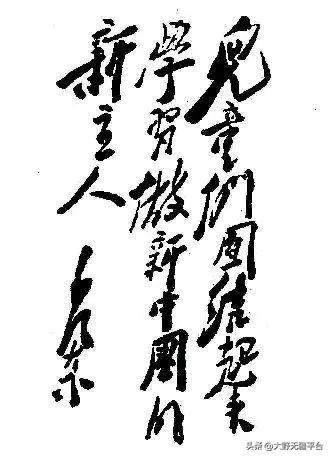 兒童們團結起來
學習做新中國的
新主人
毛澤東
头条 @大野无疆平台